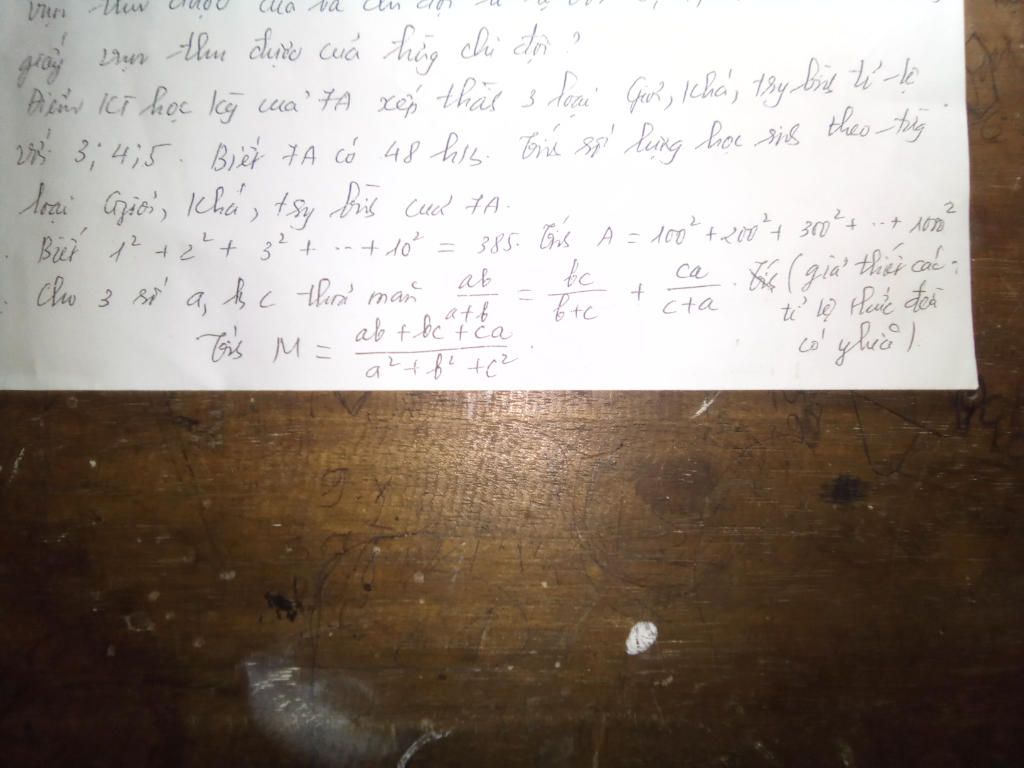 vụn thu được của
giấy vụn thu được của từng chi đội?
Điểm KT học kỳ của 7A xếp thành 3 loại Giỏi, Khá, try bình tỉ lệ
với 3; 4; 5. Biết 7A có 48 h/s. Tính số lượng học sinh theo từng
loại Giỏi, Khá, try bình của 7A.
Biết 1² + 2² + 3² + ... + 10² = 385. Tính A = 100² + 200² + 300² + ... + 1000²
Cho 3 số a, b, c thoả mãn ab/a+b = bc/b+c + ca/c+a. (giả thiết các
tỉ lệ thức đều
Tính M = ab + bc + ca/a² + b² + c².
có nghĩa).